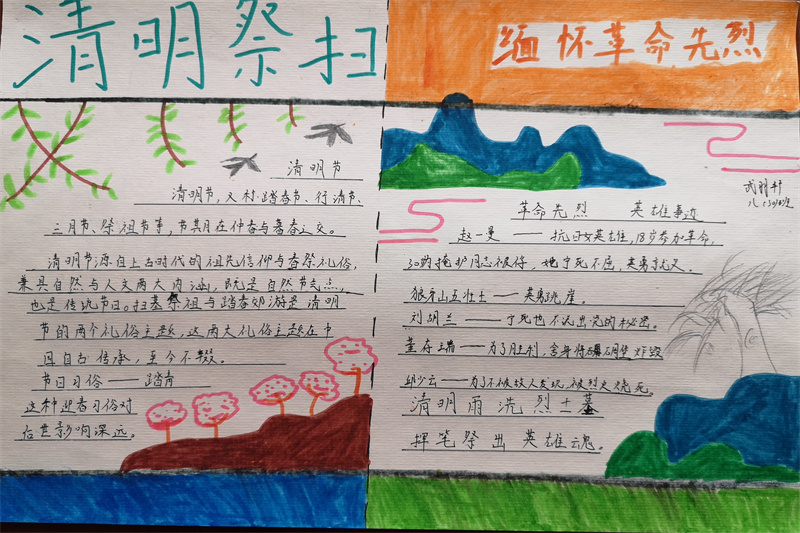 清明祭扫
缅怀革命先烈
清明节
清明节,又称踏春节、行清节、
三月节、祭祖节等,节期在仲春与暮春之交。
清明节源自上古时代的祖先信仰与春祭礼俗,
兼具自然与人文两大内涵,既是自然节气点,
也是传统节日。扫墓祭祖与踏春郊游是清明
节的两个礼俗主题,这两大礼俗主题在中
国自古传承,至今不辍。
节日习俗——踏青
这种迎春习俗对
后世影响深远。
革命先烈 英雄事迹
赵一曼——抗日女英雄,18岁参加革命,
30岁掩护同志被俘,她宁死不屈,英勇就义。
狼牙山五壮士——英勇跳崖。
刘胡兰——宁死也不说出党的秘密。
董存瑞——为了胜利,舍身将碉堡炸毁
邱少云——为了不被敌人发现,被烈火烧死。
清明雨洗烈士墓
挥笔祭出英雄魂。